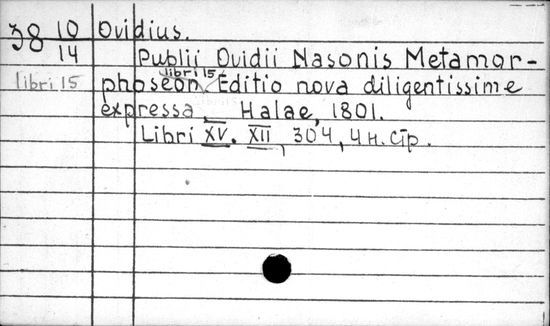 38 10 Ovidius.
14 Publii Ovidii Nasonis Metamor-
libri 15 phoseon libri 15 Editio nova diligentissime
expressa Halae, 1801.
Libri XV. XII, 304, 4 н. стр.